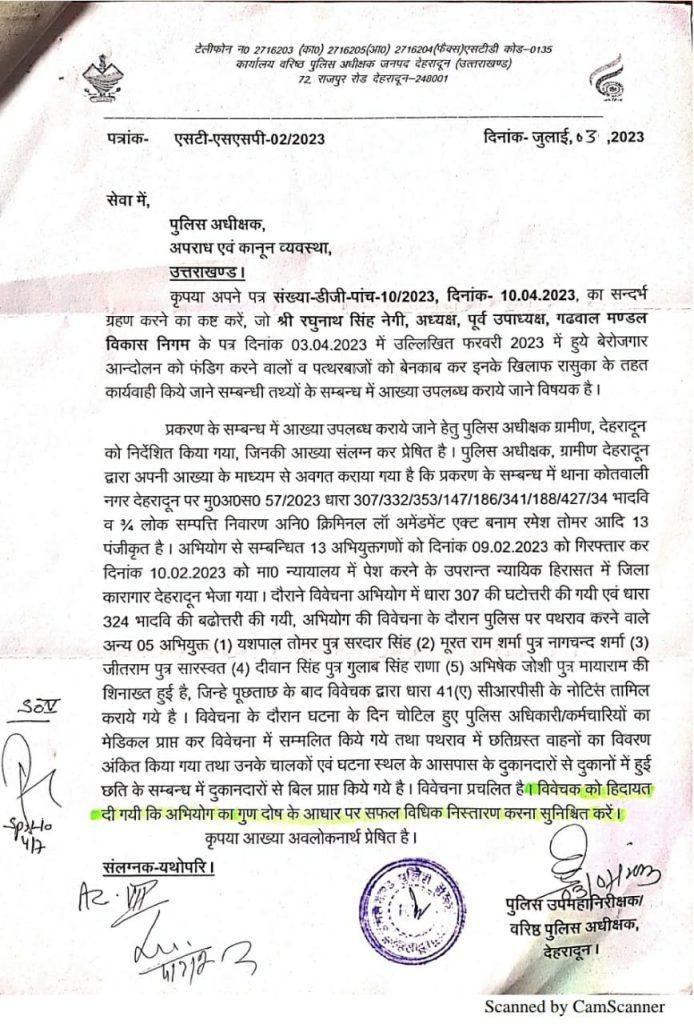 टेलीफोन न0 2716203 (का0) 2716205(आ0) 2716204(फैक्स)एसटीडी कोड-0135
कार्यालय वरिष्ठ पुलिस अधीक्षक जनपद देहरादून (उत्तराखण्ड)
72, राजपुर रोड देहरादून-248001
पत्रांक- एसटी-एसएसपी-02/2023 दिनांक- जुलाई, 03 ,2023
सेवा में,
पुलिस अधीक्षक,
अपराध एवं कानून व्यवस्था,
उत्तराखण्ड।
कृपया अपने पत्र संख्या-डीजी-पांच-10/2023, दिनांक- 10.04.2023, का सन्दर्भ
ग्रहण करने का कष्ट करें, जो श्री रघुनाथ सिंह नेगी, अध्यक्ष, पूर्व उपाध्यक्ष, गढवाल मण्डल
विकास निगम के पत्र दिनांक 03.04.2023 में उल्लिखित फरवरी 2023 में हुये बेरोजगार
आन्दोलन को फंडिग करने वालों व पत्थरबाजों को बेनकाब कर इनके खिलाफ रासुका के तहत
कार्यवाही किये जाने सम्बन्धी तथ्यों के सम्बन्ध में आख्या उपलब्ध कराये जाने विषयक है।
प्रकरण के सम्बन्ध में आख्या उपलब्ध कराये जाने हेतु पुलिस अधीक्षक ग्रामीण, देहरादून
को निर्देशित किया गया, जिनकी आख्या संलग्न कर प्रेषित है। पुलिस अधीक्षक, ग्रामीण देहरादून
द्वारा अपनी आख्या के माध्यम से अवगत कराया गया है कि प्रकरण के सम्बन्ध में थाना कोतवाली
नगर देहरादून पर मु0अ0स0 57/2023 धारा 307/332/353/147/186/341/188/427/34 भादवि
व ¾ लोक सम्पत्ति निवारण अनि0 क्रिमिनल लॉ अमेंडमेंट एक्ट बनाम रमेश तोमर आदि 13
पंजीकृत है। अभियोग से सम्बन्धित 13 अभियुक्तगणों को दिनांक 09.02.2023 को गिरफ्तार कर
दिनांक 10.02.2023 को मा0 न्यायालय में पेश करने के उपरान्त न्यायिक हिरासत में जिला
कारागार देहरादून भेजा गया। दौराने विवेचना अभियोग में धारा 307 की घटोत्तरी की गयी एवं धारा
324 भादवि की बढोत्तरी की गयी, अभियोग की विवेचना के दौरान पुलिस पर पथराव करने वाले
अन्य 05 अभियुक्त (1) यशपाल तोमर पुत्र सरदार सिंह (2) मूरत राम शर्मा पुत्र नागचन्द शर्मा (3)
जीतराम पुत्र सारस्वत (4) दीवान सिंह पुत्र गुलाब सिंह राणा (5) अभिषेक जोशी पुत्र मायाराम की
शिनाख्त हुई है, जिन्हे पूछताछ के बाद विवेचक द्वारा धारा 41(ए) सीआरपीसी के नोटिस तामिल
कराये गये है। विवेचना के दौरान घटना के दिन चोटिल हुए पुलिस अधिकारी/कर्मचारियों का
मेडिकल प्राप्त कर विवेचना में सम्मलित किये गये तथा पथराव में छतिग्रस्त वाहनों का विवरण
अंकित किया गया तथा उनके चालकों एवं घटना स्थल के आसपास के दुकानदारों से दुकानों में हुई
छति के सम्बन्ध में दुकानदारों से बिल प्राप्त किये गये है। विवेचना प्रचलित है। विवेचक को हिदायत
दी गयी कि अभियोग का गुण दोष के आधार पर सफल विधिक निस्तारण करना सुनिश्चित करें।
कृपया आख्या अवलोकनार्थ प्रेषित है।
संलग्नक-यथोपरि।
4/7
03/07/2023
पुलिस उपमहानिरीक्षक/
वरिष्ठ पुलिस अधीक्षक,
देहरादून।
Scanned by CamScanner